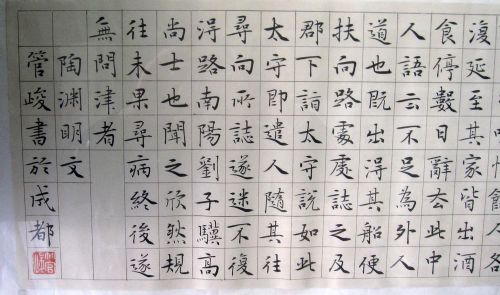 復延至其家皆出酒
食停數日辭去此中
人語云不足為外人
道也既出得其船便
扶向路處處誌之及
郡下詣太守說如此
太守即遣人隨其往
尋向所誌遂迷不復
得路南陽劉子驥高
尚士也聞之欣然規
往未果尋病終後遂
無問津者
陶淵明文
管峻書於成都